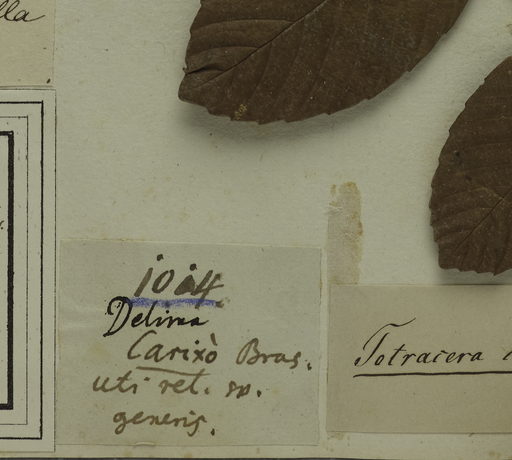 lla
1014
Delima
Carixò Bras.
uti rel. sp.
generis.
Tetracera